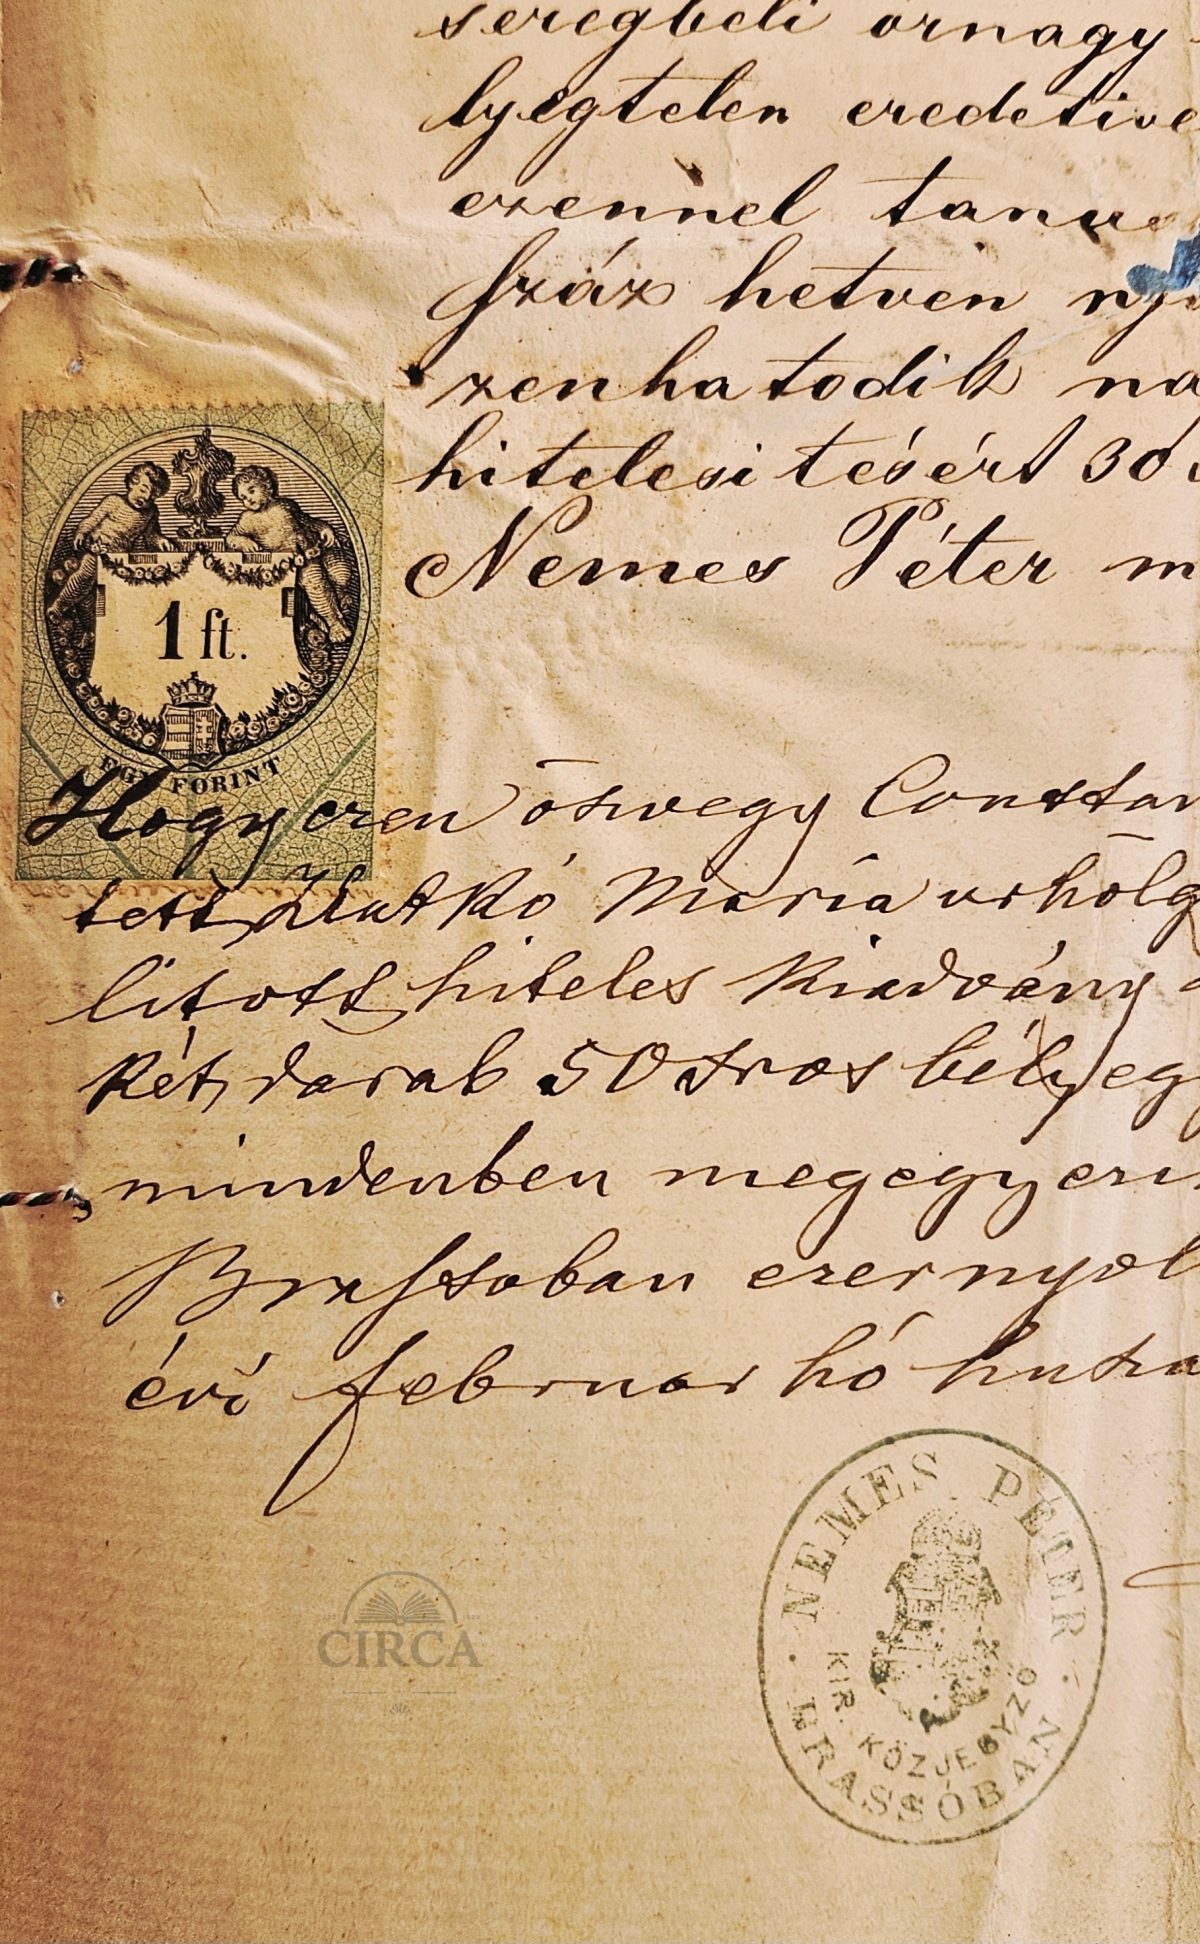 seregbeli őrnagy
lyegtelen eredetive
ezennel tanus
száz hetven nyo
zenhatodik na
hitelesitésért 30
Nemes Péter m
1 ft.
EGY FORINT
Hogy ezen özvegy Constan
tett Zlatkó Maria urhölg
litott hiteles kiadvány a
két darab 50 kros bélyeg
mindenben megegyezi
Brassoban ezernyol
évi februar hó husza
NEMES PÉTER
KIR. KÖZJEGYZŐ
BRASSÓBAN
CIRCA